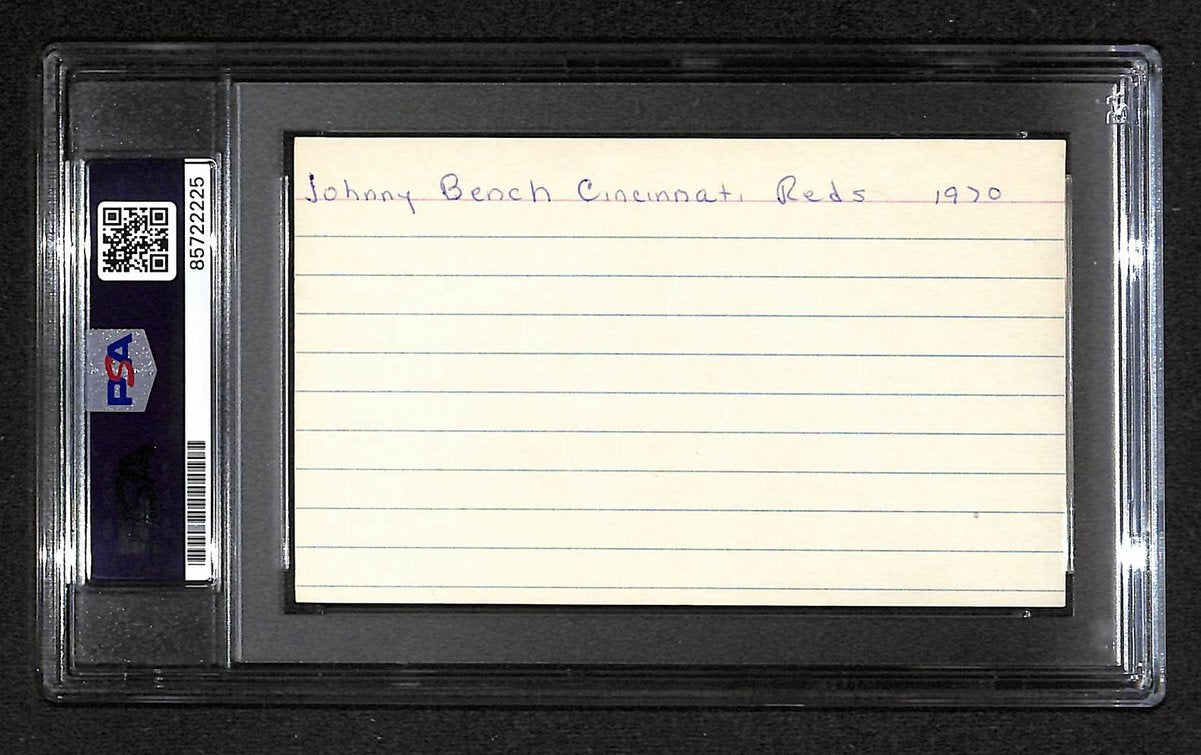 Johnny Bench Cincinnati Reds 1970
85722225
PSA
PSA